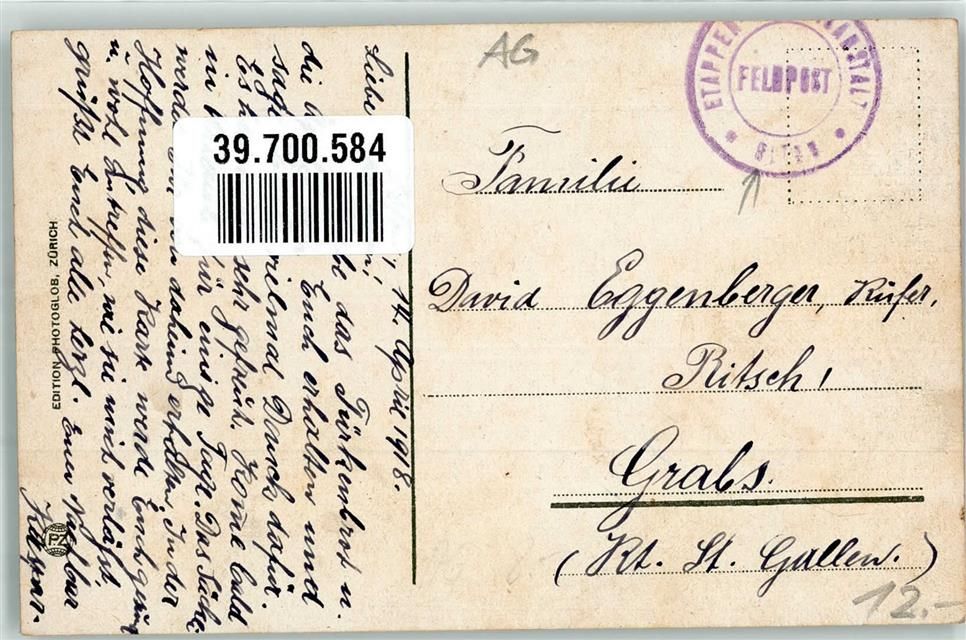 AG
ETAPPEN
ANSTALT
FELDPOST
Familie
David Eggenberger, Küfer,
Ritsch,
Grabs.
(Kt. St. Gallen.)
12.-
39.700.584
EDITION PHOTOGLOB, ZÜRICH
PZ
14. April 1918.
Liebe
die das Türkenbrot u.
Euch erhalten und
sag vielmal Dank dafür.
Es sehr gefreut. Komme bald
in für einige Tage. Das
werde dahin erhalten. In der
Hoffnung, diese Karte werde Euch gesund
u. wohl antreffen, wie sie mich verläßt
grüßt Euch alle herzl. Euer Nachbar